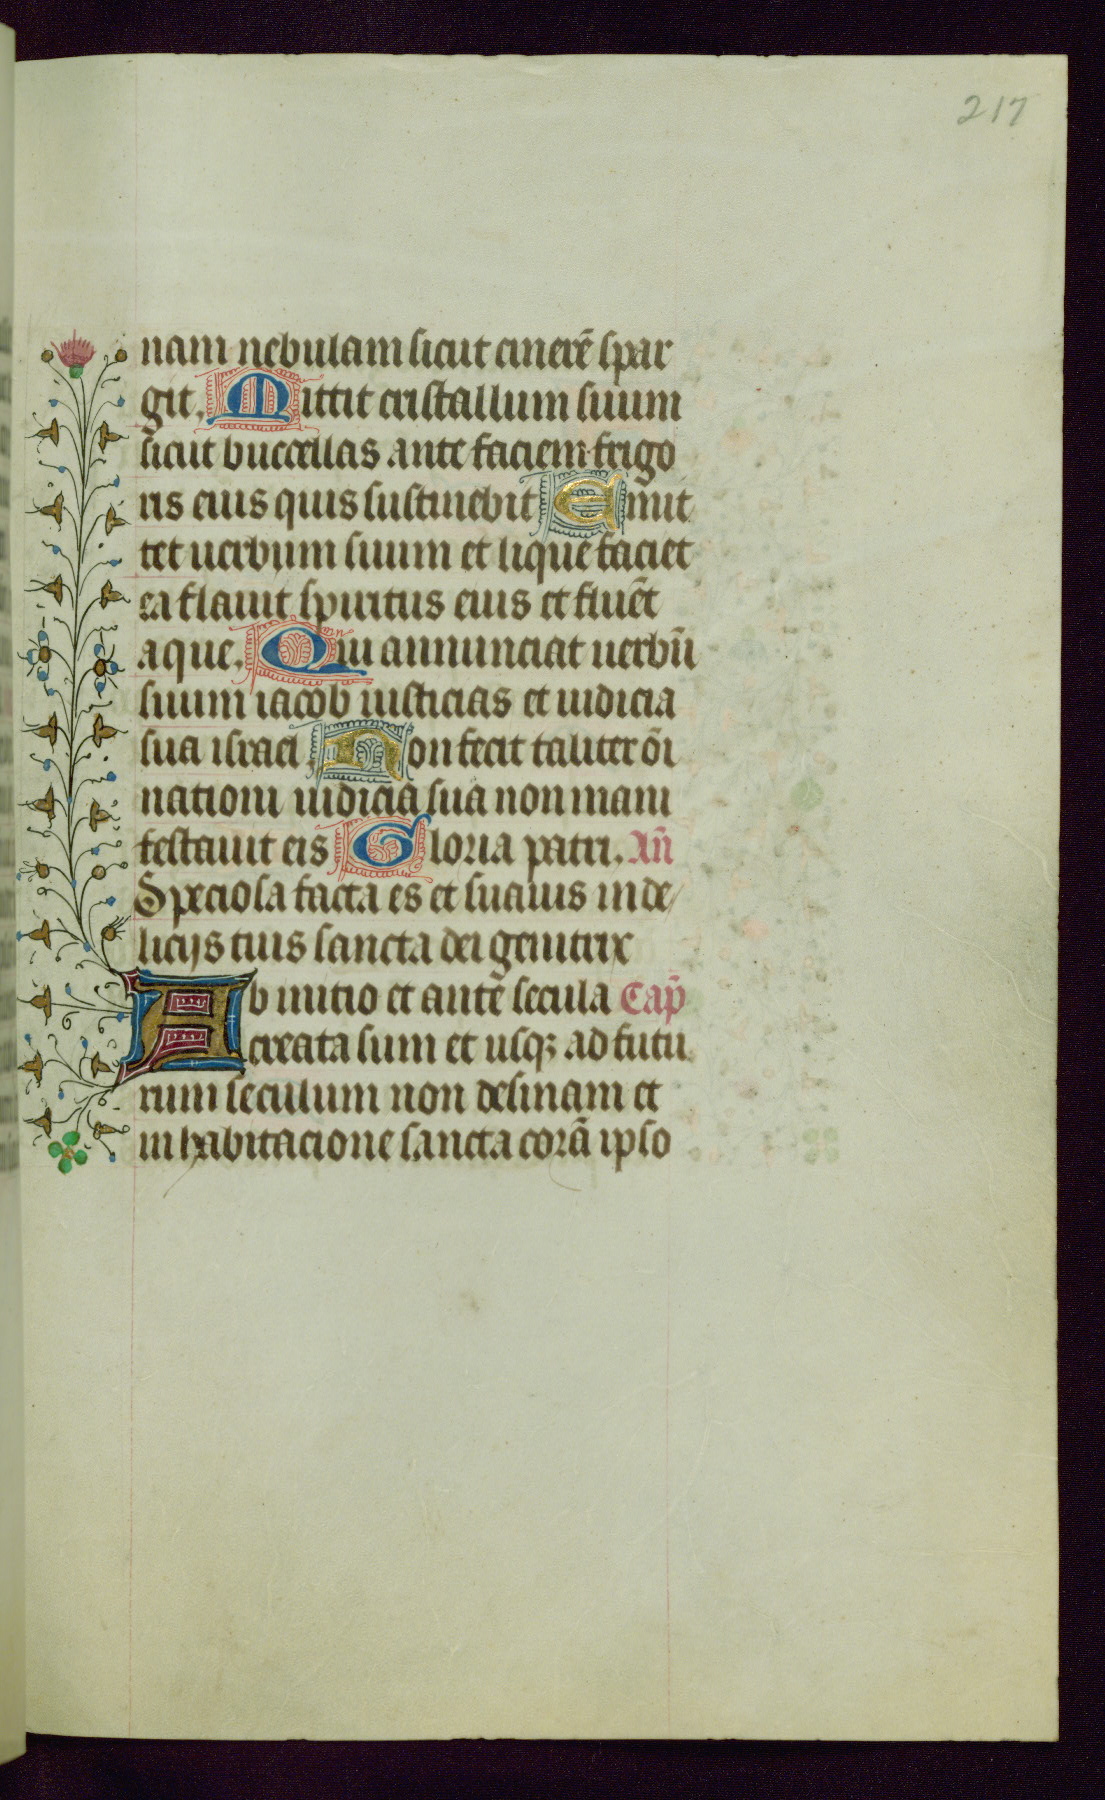 217
nam nebulam sicut cinerē spar
git. Mittit cristallum suum
sicut buccellas ante faciem frigo
ris eius quis sustinebit Emit
tet uerbum suum et liquefaciet
ea flauit spiritus eius et fluēt
aque. Qui annunciat uerbū
suum iacob iusticias et iudicia
sua israel. Non fecit taliter oī
nationi iudicia sua non mani
festauit eis Gloria patri. An̄
Speciosa facta es et suauis in de/
licijs tuis sancta dei genitrix
Ab initio et ante secula Cap̄
creata sum et usqꝫ ad futu
rum seculum non desinam et
in habitacione sancta corā ipso